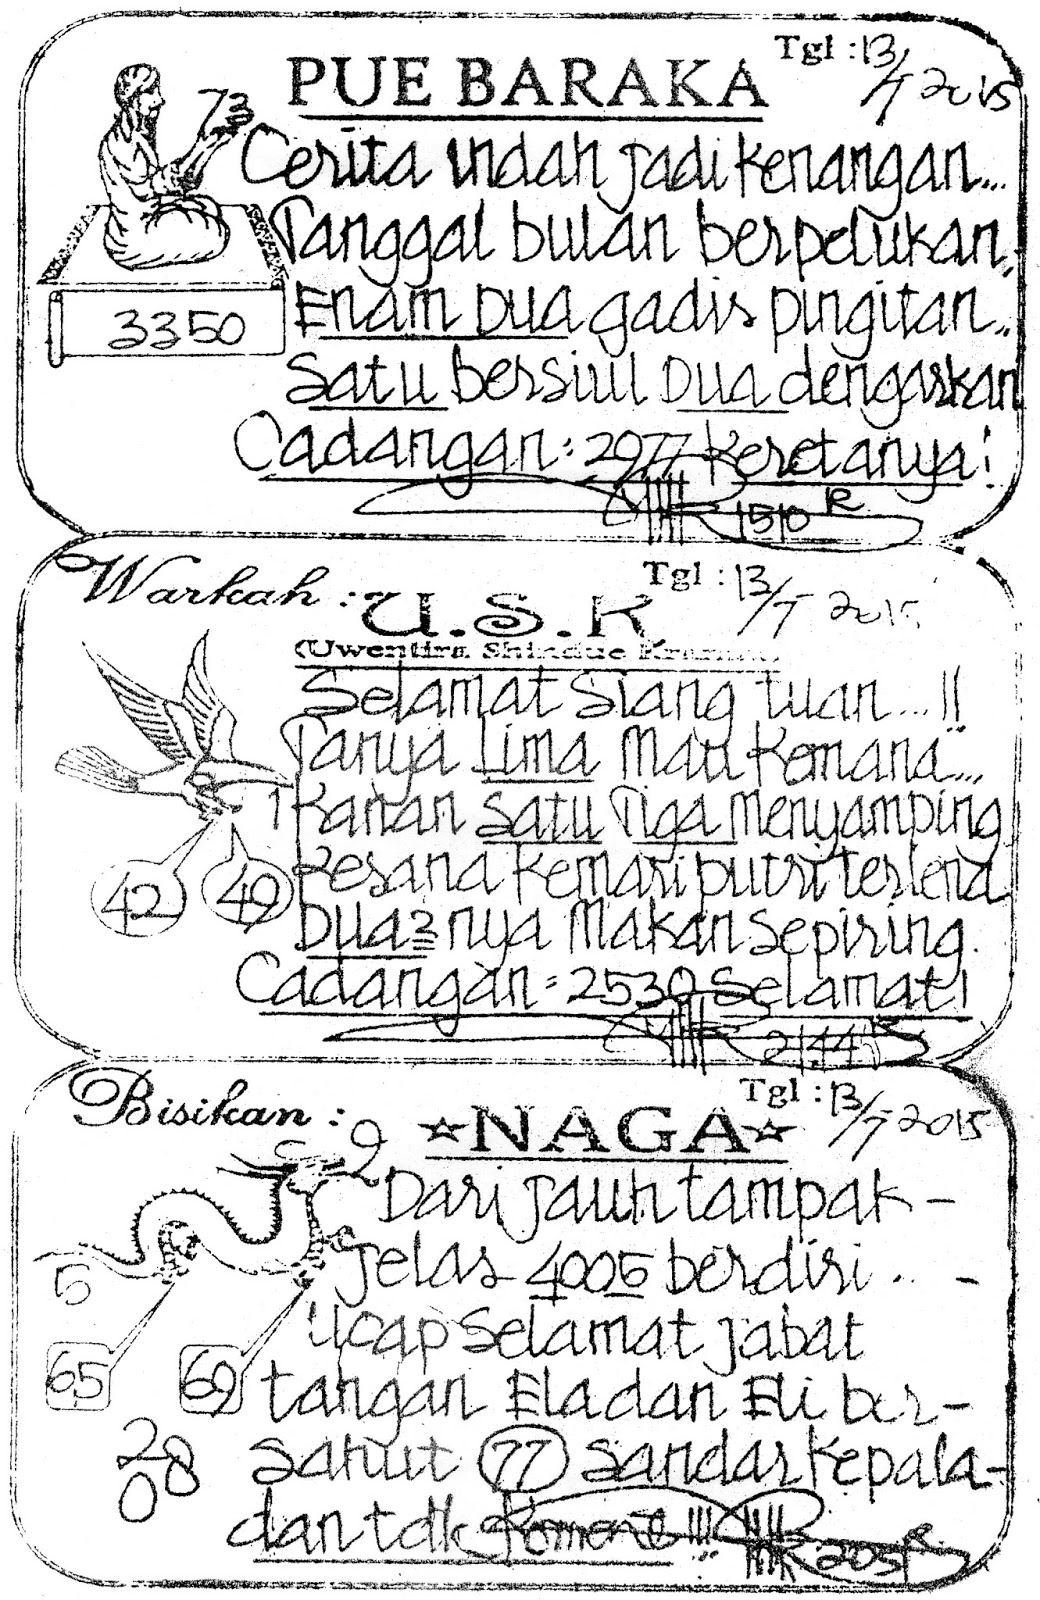 Tgl : 13/7 2015
PUE BARAKA
73
Cerita indah jadi kenangan...
Tanggal bulan berpelukan.
Enam Dua gadis pingitan..
3350
Satu bersiul Dua dengarkan
Cadangan : 2977 Keretanya!
1510 R
Warkah :
Tgl : 13/7 2015
U.S.K
(Uwentira Shindue Kramat)
Selamat Siang tuan...!!
Tanya Lima Mau Kemana"...
1
Kanan Satu Tiga Menyamping
Kesana Kemari putri terlena
42 49
Dua2nya Makan Sepiring.
Cadangan = 2530 Selamat!
21,44
Bisikan :
Tgl : 13/7 2015
☆NAGA☆
2
Dari jauh tampak -
jelas 4005 berdiri .. -
5
Ucap Selamat jabat
65 69
tangan Ela dan Eli ber-
28
sahut 77 sandar kepala-
00
dan tdk Komen !!!
205 R